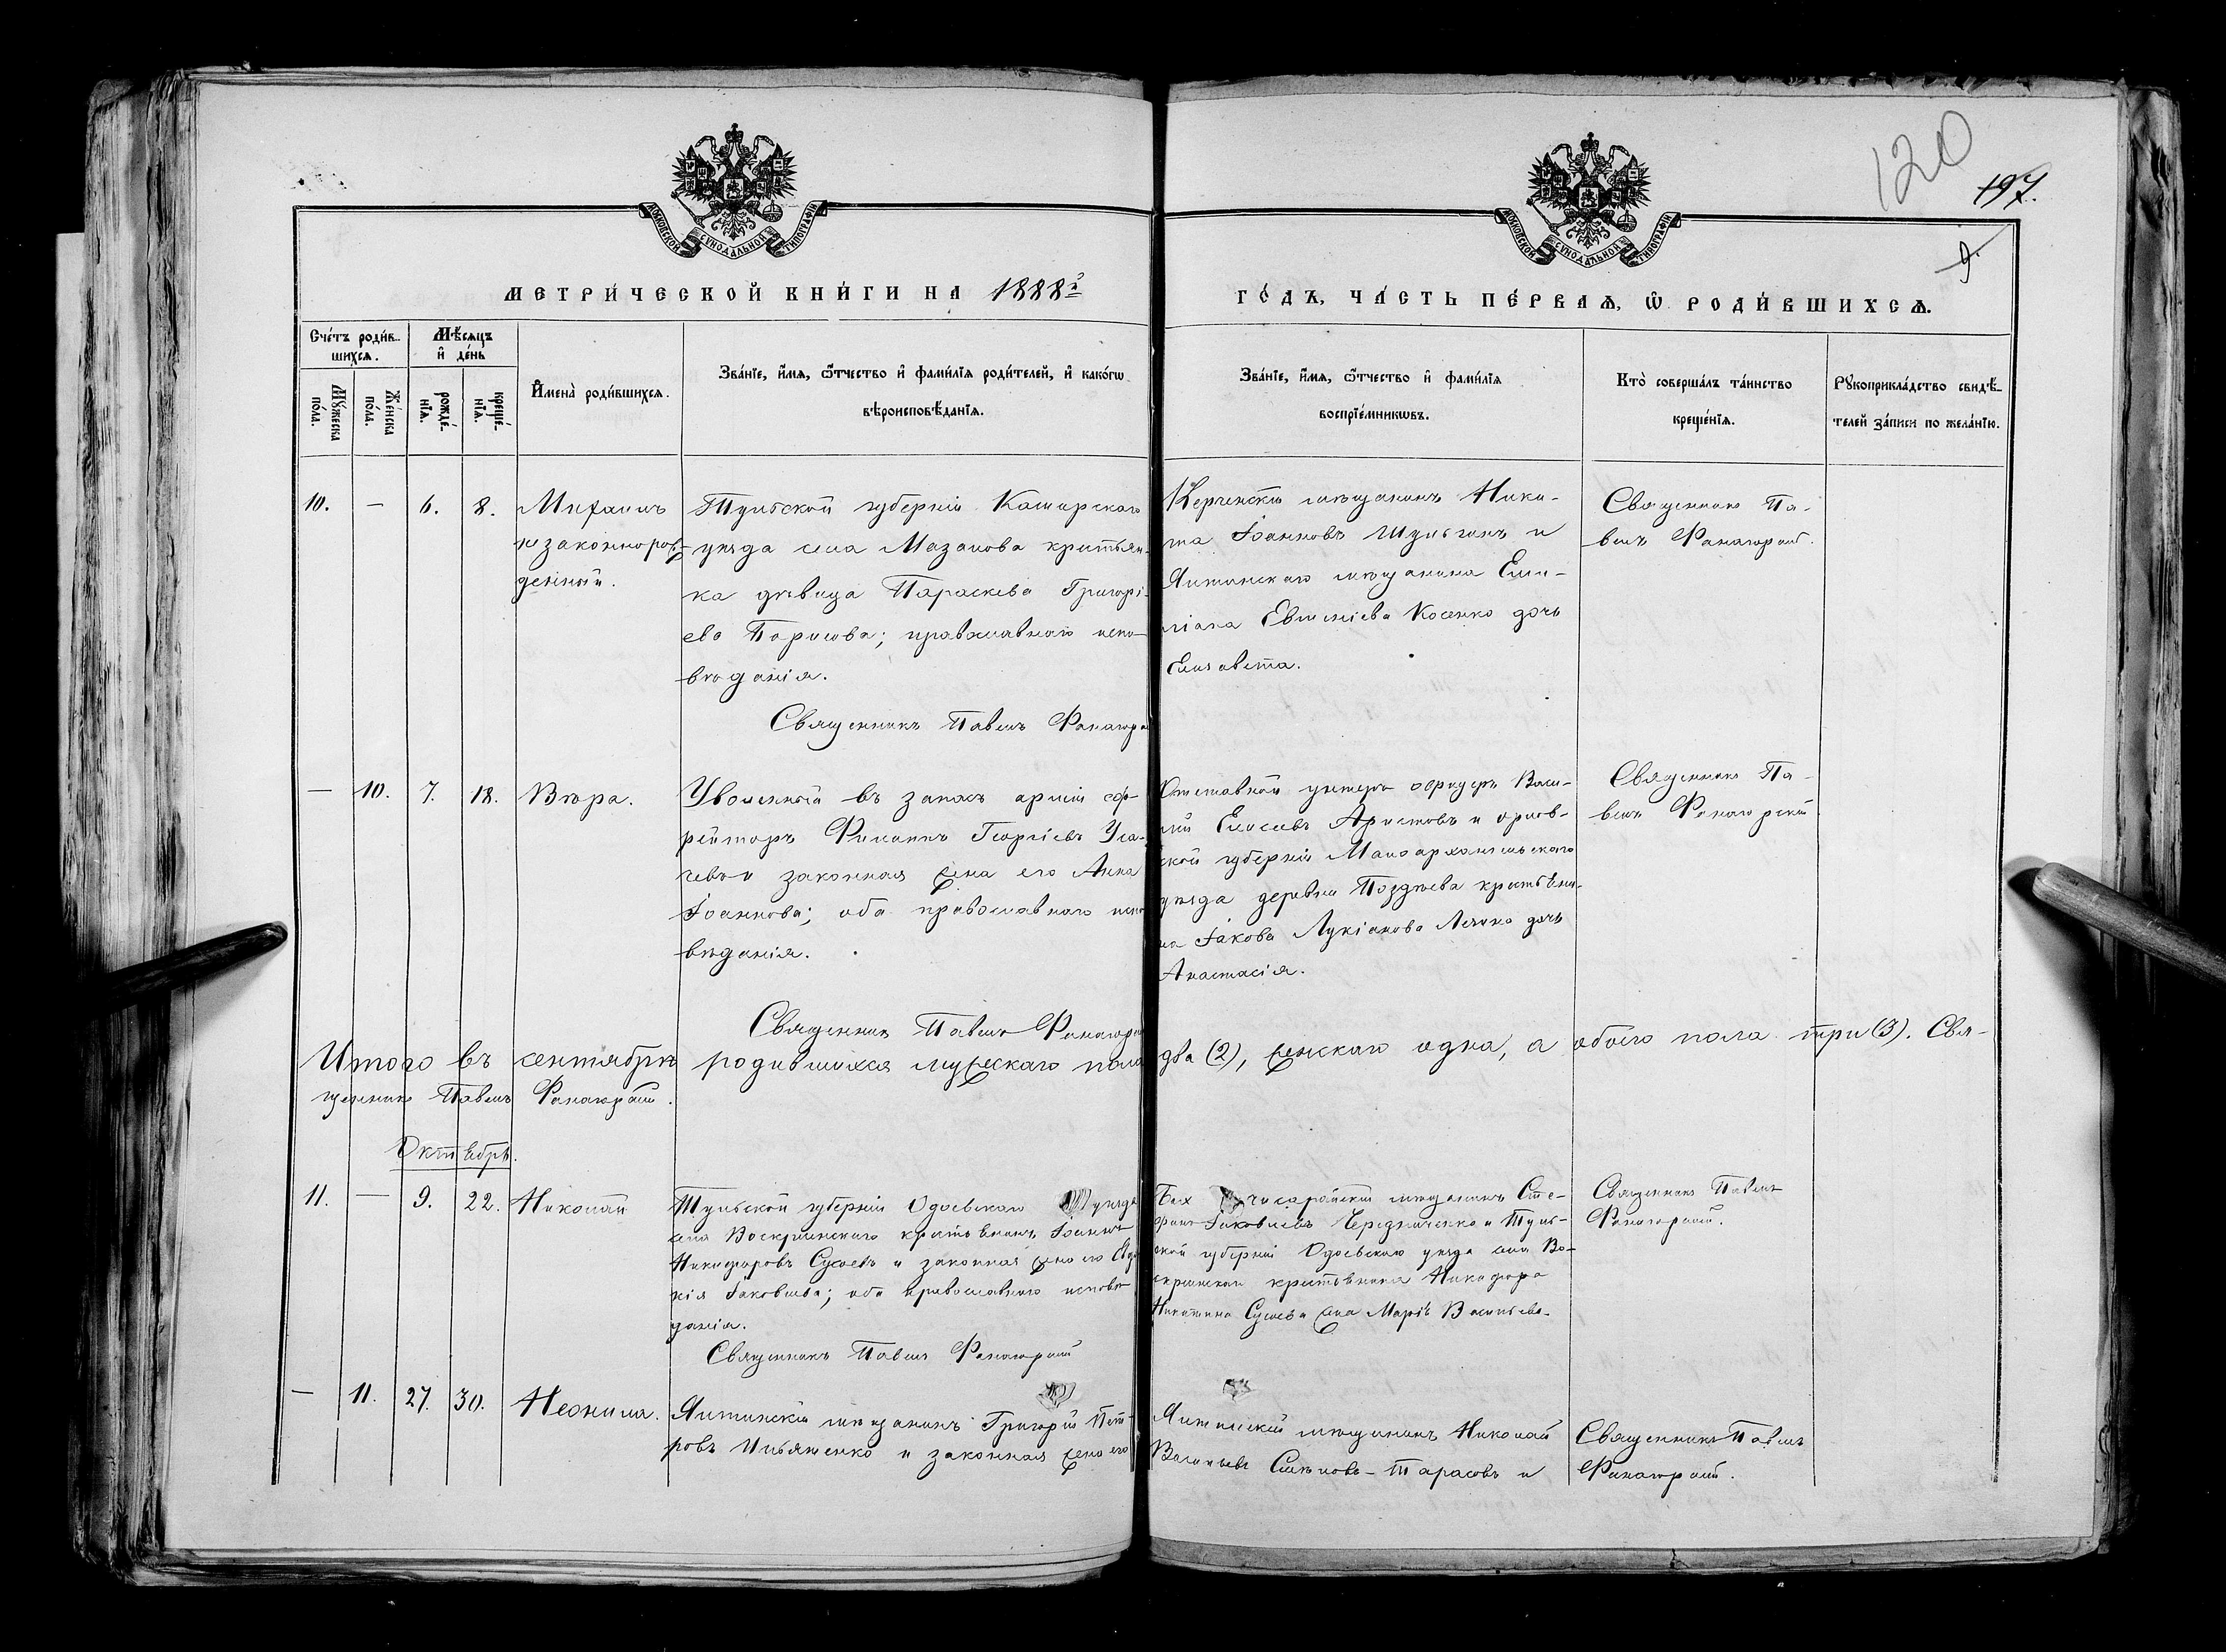 120
197.
9.
МОСКОВСКОЙ СѴНОДАЛЬНОЙ ТИПОГРАФІИ
МОСКОВСКОЙ СѴНОДАЛЬНОЙ ТИПОГРАФІИ
МЕТРИ́ЧЕСКОЙ КНИ́ГИ НА 1888й
ГО́ДЪ, ЧА́СТЬ ПЕ́РВАѦ, Ѡ РОДИ́ВШИХСѦ.
Сче́тъ роди́в-
шихсѧ.
Мꙋ́жеска
по́ла.
Же́нска
по́ла.
Мѣ́сѧцъ
и҆ де́нь
рожде́-
нїѧ.
креще́-
нїѧ.
И҆мена̀ роди́вшихсѧ.
Зва́нїе, и҆́мѧ, ѻ҆́тчество и҆ фами́лїѧ роди́телей, и҆ како́гѡ
вѣроисповѣ́данїѧ.
Зва́нїе, и҆́мѧ, ѻ҆́тчество и҆ фами́лїѧ
воспрїе́мникѡвъ.
Кто̀ соверша́лъ та́инство
креще́нїѧ.
Рꙋкоприкла́дство свидѣ́-
телей за́писи по жела́нїю.
10. — 6. 8. Михаилъ
незаконнорож-
денный.
Тульской губерніи Каширскаго
уѣзда села Мазалова крестьян-
ка дѣвица Параскева Григорі-
ева Борисова; православнаго испо-
вѣданія.
Священникъ Павелъ
Керченскій мѣщанинъ Ники-
та Іоанновъ Шульгинъ и
Ялтинскаго мѣщанина Еми-
ліана Евгеніева Косенко дочь
Елизавета.
Священникъ Па-
велъ
— 10. 7. 18. Вѣра.
Уволенный въ запасъ арміи еф-
рейторъ Филиппъ Георгіевъ Уса-
чевъ и законная жена его Анна
Іоаннова; оба православнаго испо-
вѣданія.
Священникъ Павелъ
Отставной унтеръ офицеръ Васи-
лій Елисеевъ Аристовъ и орлов-
ской губерніи Малоархангельскаго
уѣзда деревни Поздѣева крестьяни-
на Іакова Лукіанова дочь
Анастасія.
Священникъ Па-
велъ
Итого въ сентябрѣ родившихся мужескаго пола два (2), женскаго одна, а обоего пола три (3). Свя-
щенникъ Павелъ
Октябрь.
11. — 9. 22. Николай
Тульской губерніи Одоевскаго уѣзда
села Воскресенскаго крестьянинъ Іоаннъ
Никифоровъ и законная жена его
Іаковлева; оба православнаго исповѣ-
данія.
Священникъ Павелъ
Бахчисарайскій мѣщанинъ Сте-
фанъ Іаковлевъ Чередниченко и Туль-
ской губерніи Одоевскаго уѣзда села Во-
скресенскаго крестьянина Никифора
Никитина жена Марія Васильева.
Священникъ Павелъ
— 11. 27. 30. Неонила.
Ялтинскій мѣщанинъ Григорій Пет-
ровъ Ильяшенко и законная жена его
Ялтинскій мѣщанинъ Николай
Васильевъ Тарасовъ и
Священникъ Павелъ